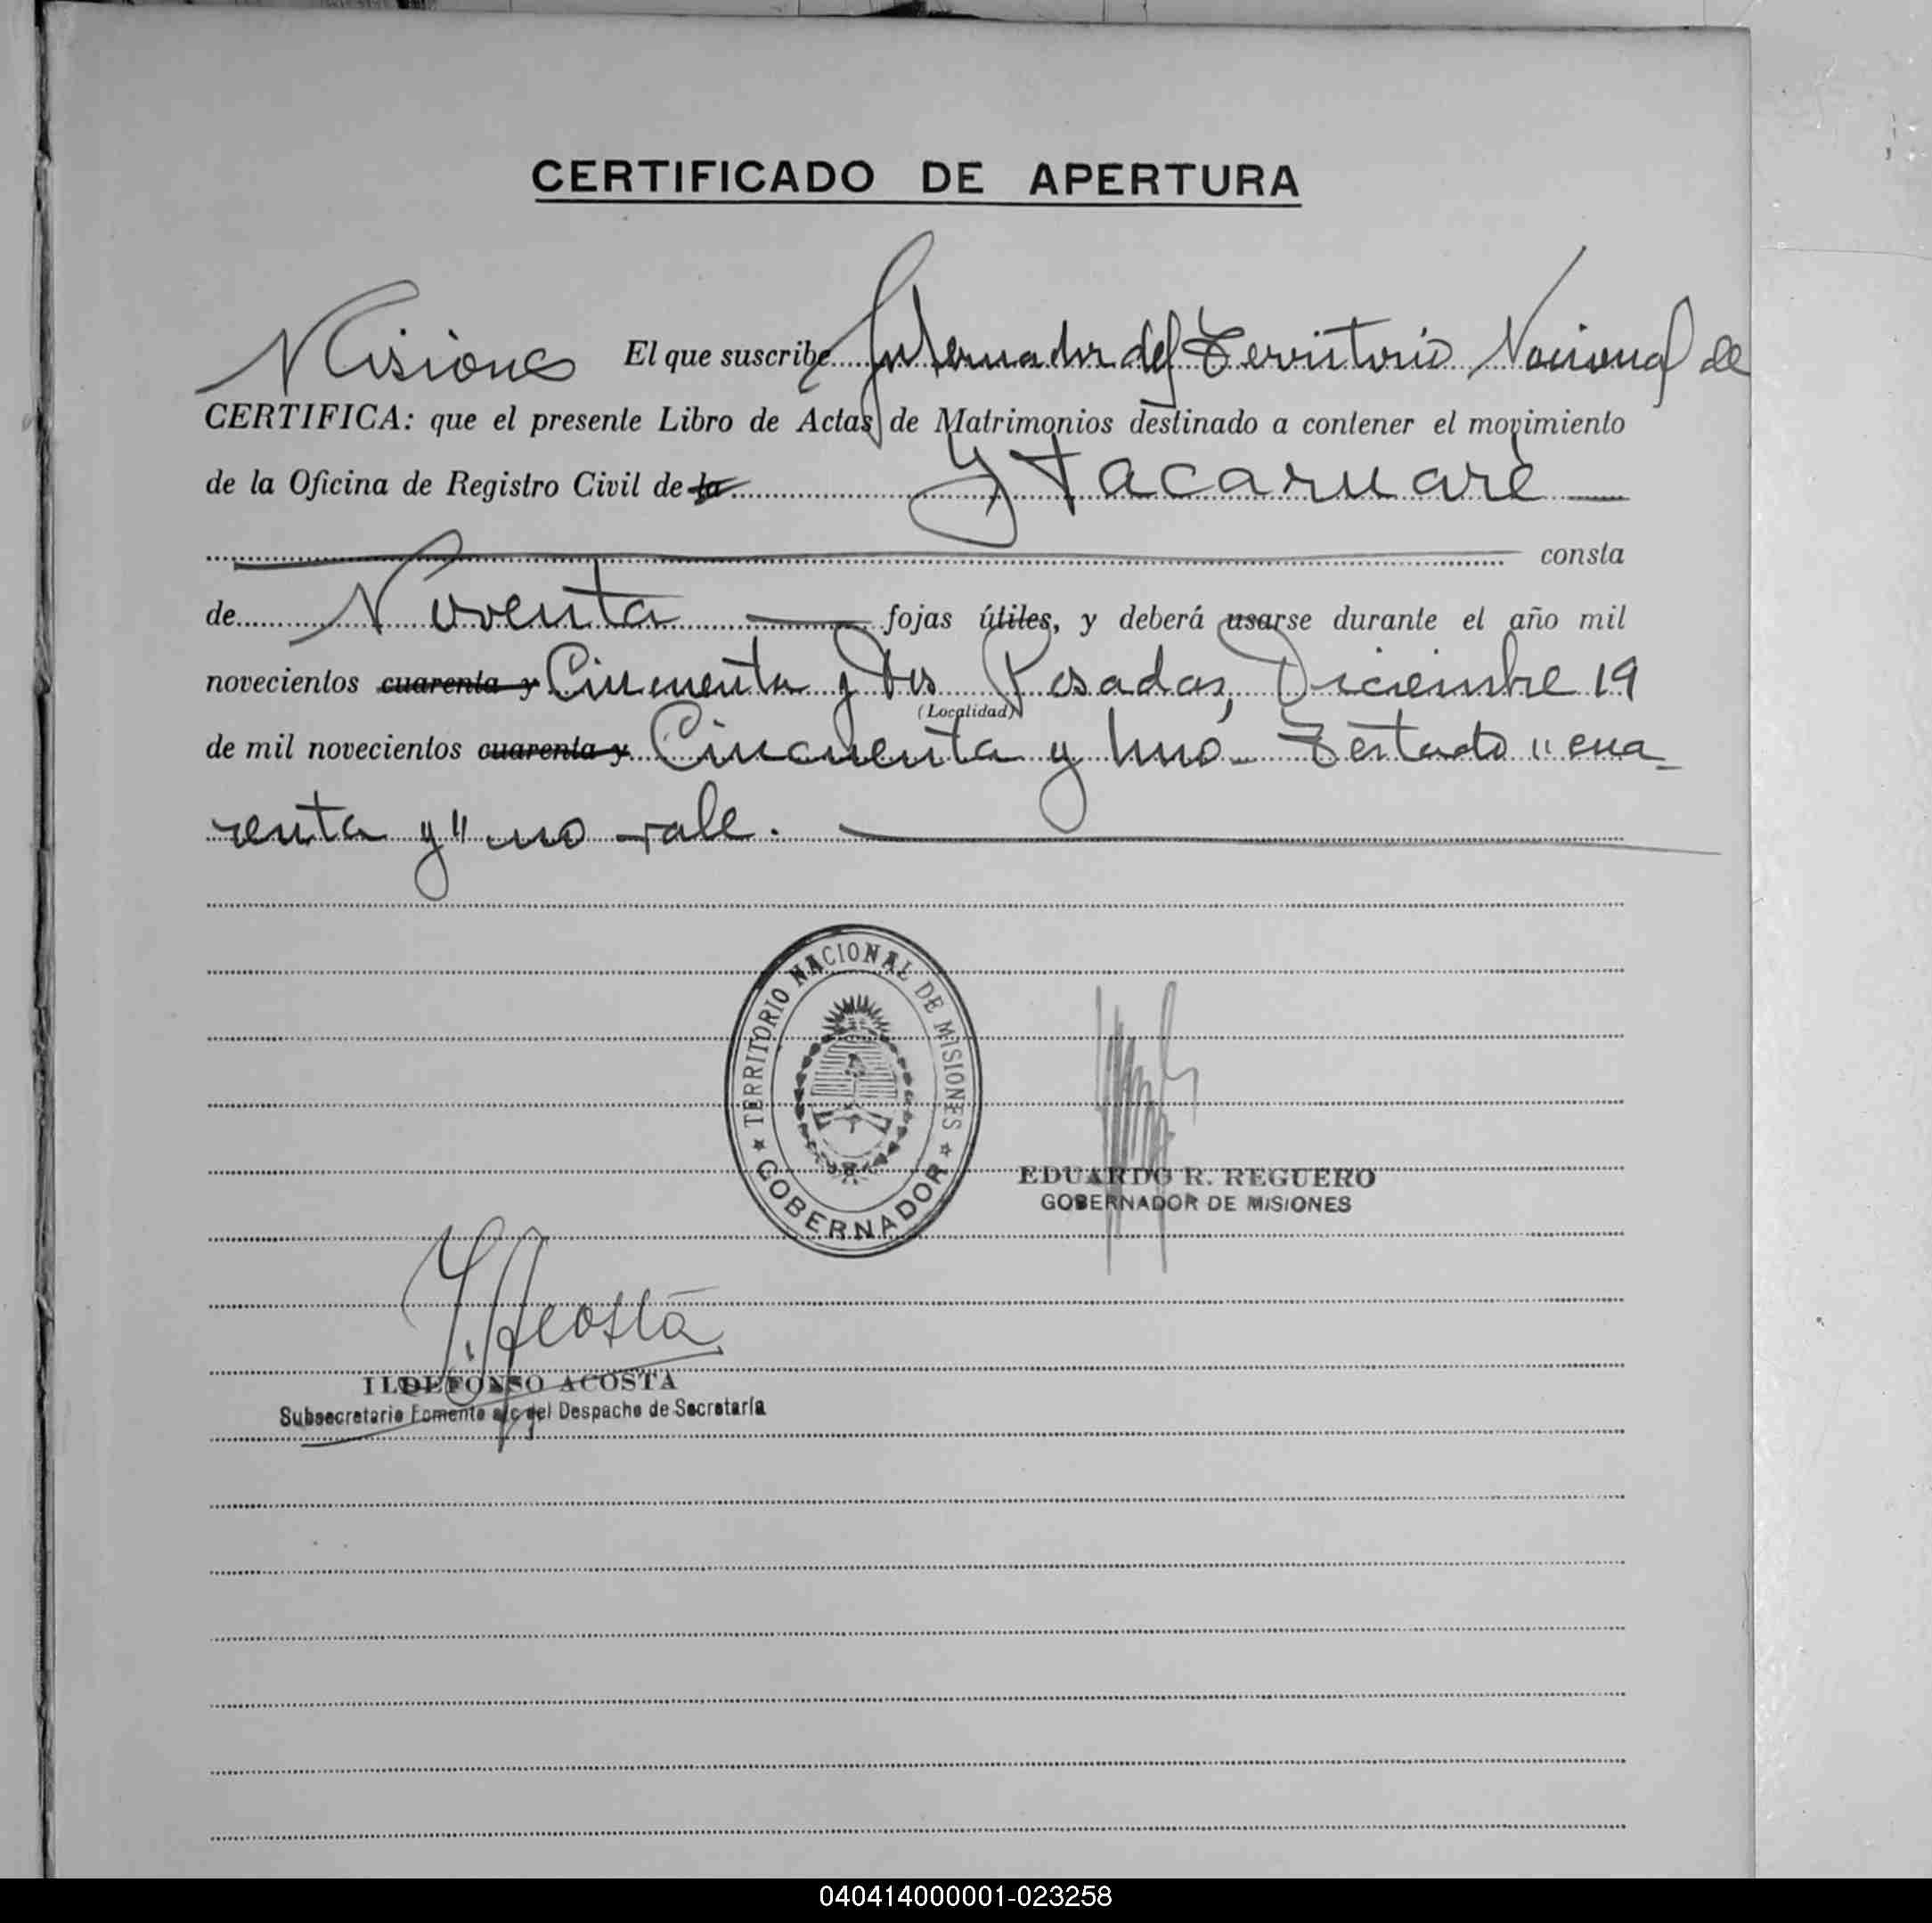 CERTIFICADO DE APERTURA
Misiones El que suscribe Gobernador del Territorio Nacional de
CERTIFICA: que el presente Libro de Actas de Matrimonios destinado a contener el movimiento
de la Oficina de Registro Civil de la Ytacaruaré
consta
de Noventa fojas útiles, y deberá usarse durante el año mil
novecientos cuarenta y Cincuenta y Dos Posadas, Diciembre 19
(Localidad)
de mil novecientos cuarenta y Cincuenta y Uno Testado "cua-
renta y" no vale.
TERRITORIO NACIONAL DE MISIONES
GOBERNADOR
EDUARDO R. REGUERO
GOBERNADOR DE MISIONES
Y. Acosta
ILDEFONSO ACOSTA
Subsecretario Fomento a/c del Despacho de Secretaría
040414000001-023258